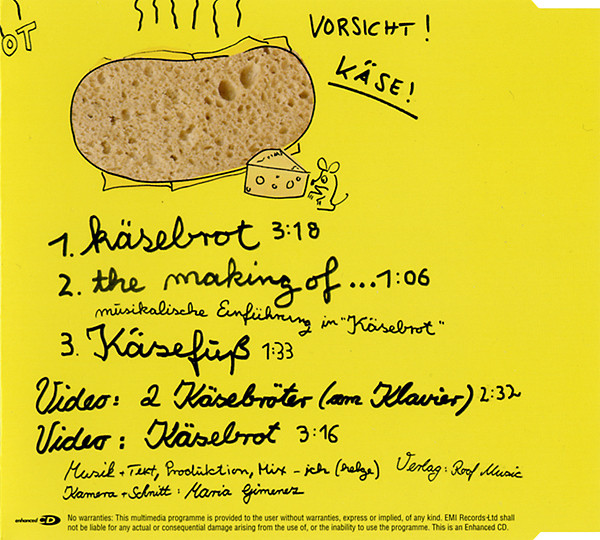 OT
VORSICHT!
KÄSE!
1. käsebrot 3:18
2. the making of...1:06
musikalische Einführung in "Käsebrot"
3. Käsefuß 1:33
Video: 2 Käsebröter (am Klavier) 2:32
Video: Käsebrot 3:16
Musik + Text, Produktion, Mix - ich (helge) Verlag: Roof Music
Kamera + Schnitt: Maria Gimenez
enhanced CD
No warranties: This multimedia programme is provided to the user without warranties, express or implied, of any kind. EMI Records Ltd shall
not be liable for any actual or consequential damage arising from the use of, or the inability to use the programme. This is an Enhanced CD.